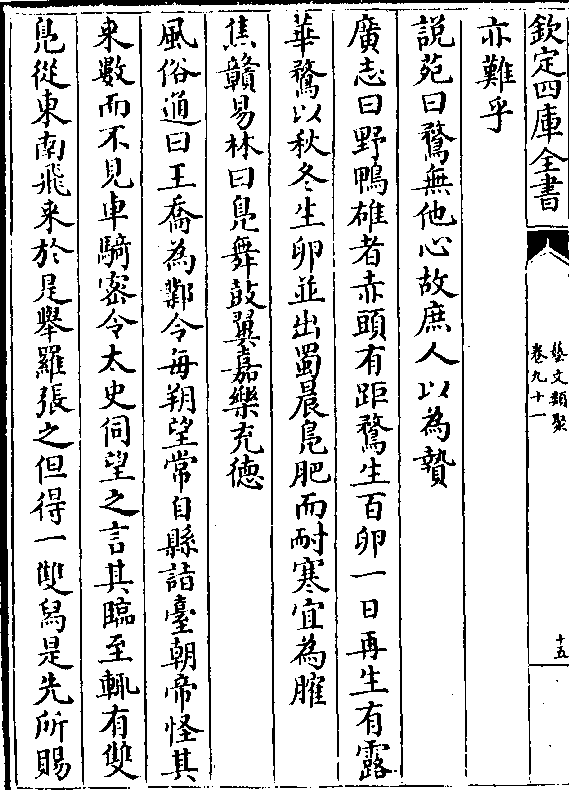 欽定四庫全書
藝文類聚
卷九十一
十五
亦難乎
說苑曰鶩無他心故庶人以為贄
廣志曰野鴨雄者赤頭有距鶩生百卵一日再生有露
華鶩以秋冬生卵並出蜀晨鳧肥而耐寒宜為臛
焦贛易林曰鳧舞鼓翼嘉樂充德
風俗通曰王喬為鄴令每朔望常自縣詣臺朝帝怪其
來數而不見車騎密令太史伺望之言其臨至輒有雙
鳧從東南飛來於是舉羅張之但得一雙舄是先所賜